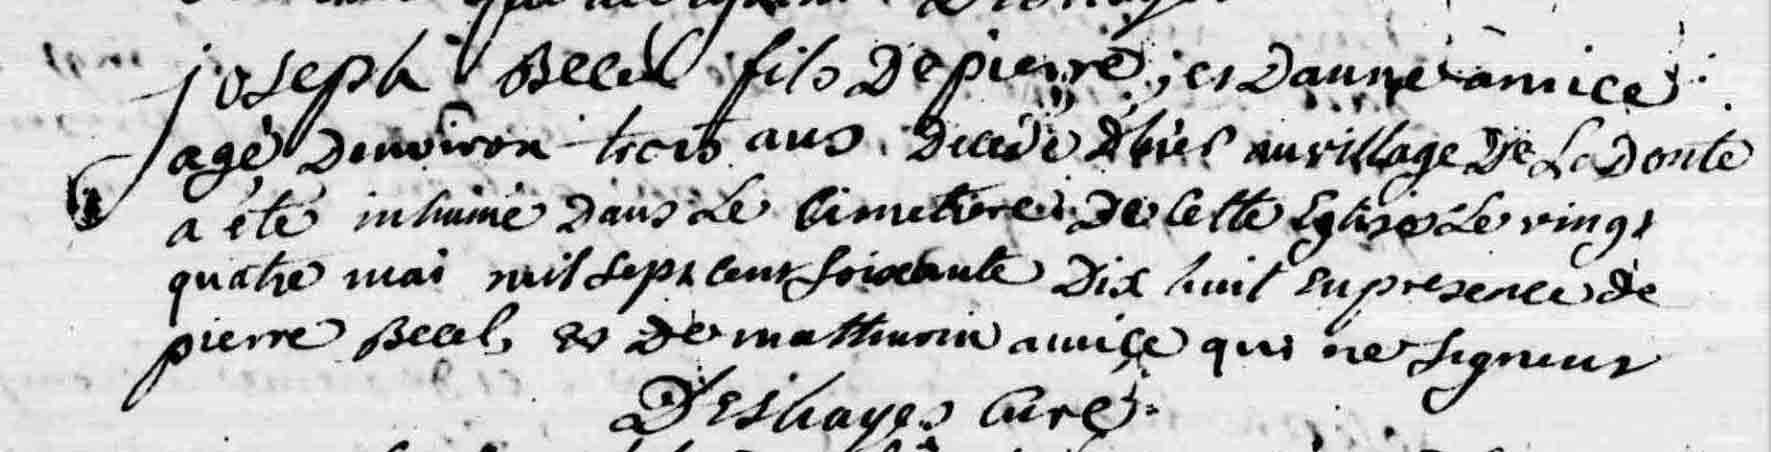 joseph Becel fils De pierre, es Danne amice
agé Denviron trois ans Decede D'hier au village De La Donte
a été inhumé Dans Le Cimetiere De Cette Eglise Le vingt
quatre mai mil sept cent soixante Dix huit en presence de
pierre Becel, es De mathurin amice qui ne signent
Deshayes Curé